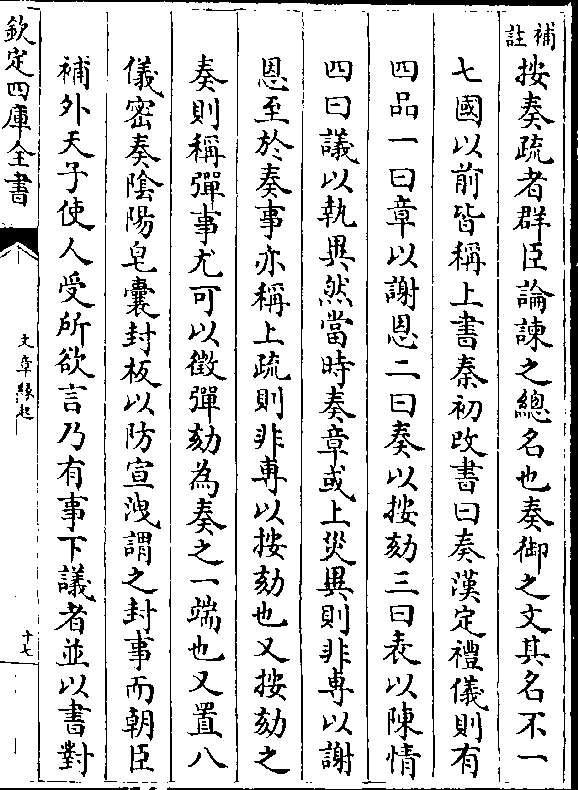 補註
按奏疏者群臣論諫之總名也奏御之文其名不一
七國以前皆稱上書秦初改書曰奏漢定禮儀則有
四品一曰章以謝恩二曰奏以按劾三曰表以陳情
四曰議以執異然當時奏章或上災異則非專以謝
恩至於奏事亦稱上疏則非專以按劾也又按劾之
奏則稱彈事尤可以徵彈劾為奏之一端也又置八
儀密奏陰陽皂囊封板以防宣洩謂之封事而朝臣
補外天子使人受所欲言乃有事下議者並以書對
欽定四庫全書
文章緣起
十七